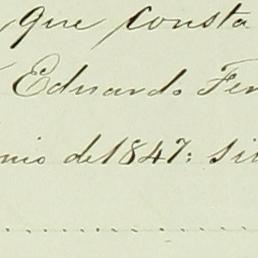 que consta
Eduardo Fer
nio de 1847: Si